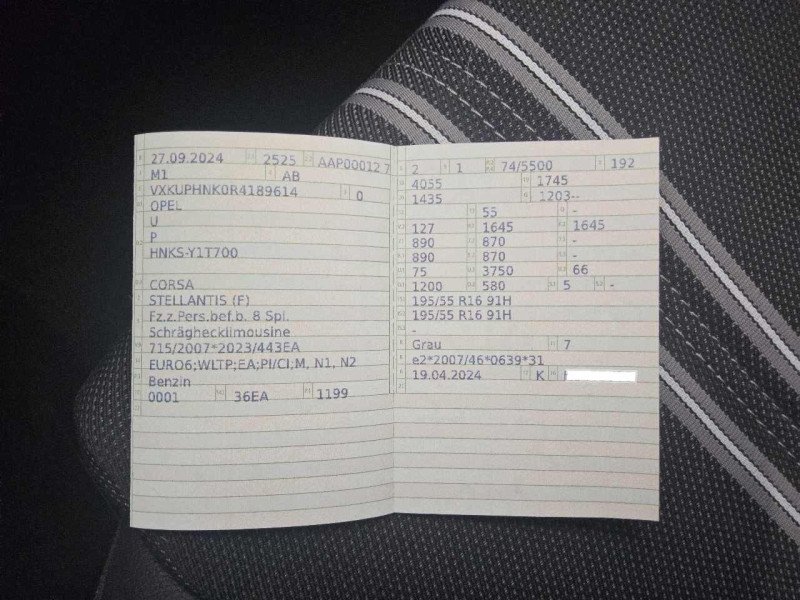 27.09.2024 2525 AAP00012 7
M1 AB
VXKUPHNK0R4189614 0
OPEL
U
P
HNKS-Y1T700
CORSA
STELLANTIS (F)
Fz.z.Pers.bef.b. 8 Spl.
Schräghecklimousine
715/2007*2023/443EA
EURO6;WLTP;EA;PI/CI;M, N1, N2
Benzin
0001 36EA 1199
2 1 74/5500 192
4055 1745
1435 1203--
55 -
127 1645 1645
890 870 -
890 870 -
75 3750 66
1200 580 5 -
195/55 R16 91H
195/55 R16 91H
-
Grau 7
e2*2007/46*0639*31
19.04.2024 K